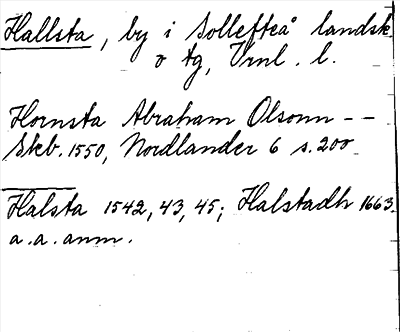 Hallsta, by i Sollefteå landsk
o tg, Vrnl. l.
Hornsta Abraham Olsonn --
Skb. 1550, Nordlander 6 s. 200
Halsta 1542, 43, 45; Halstadh 1663.
a. a. anm.